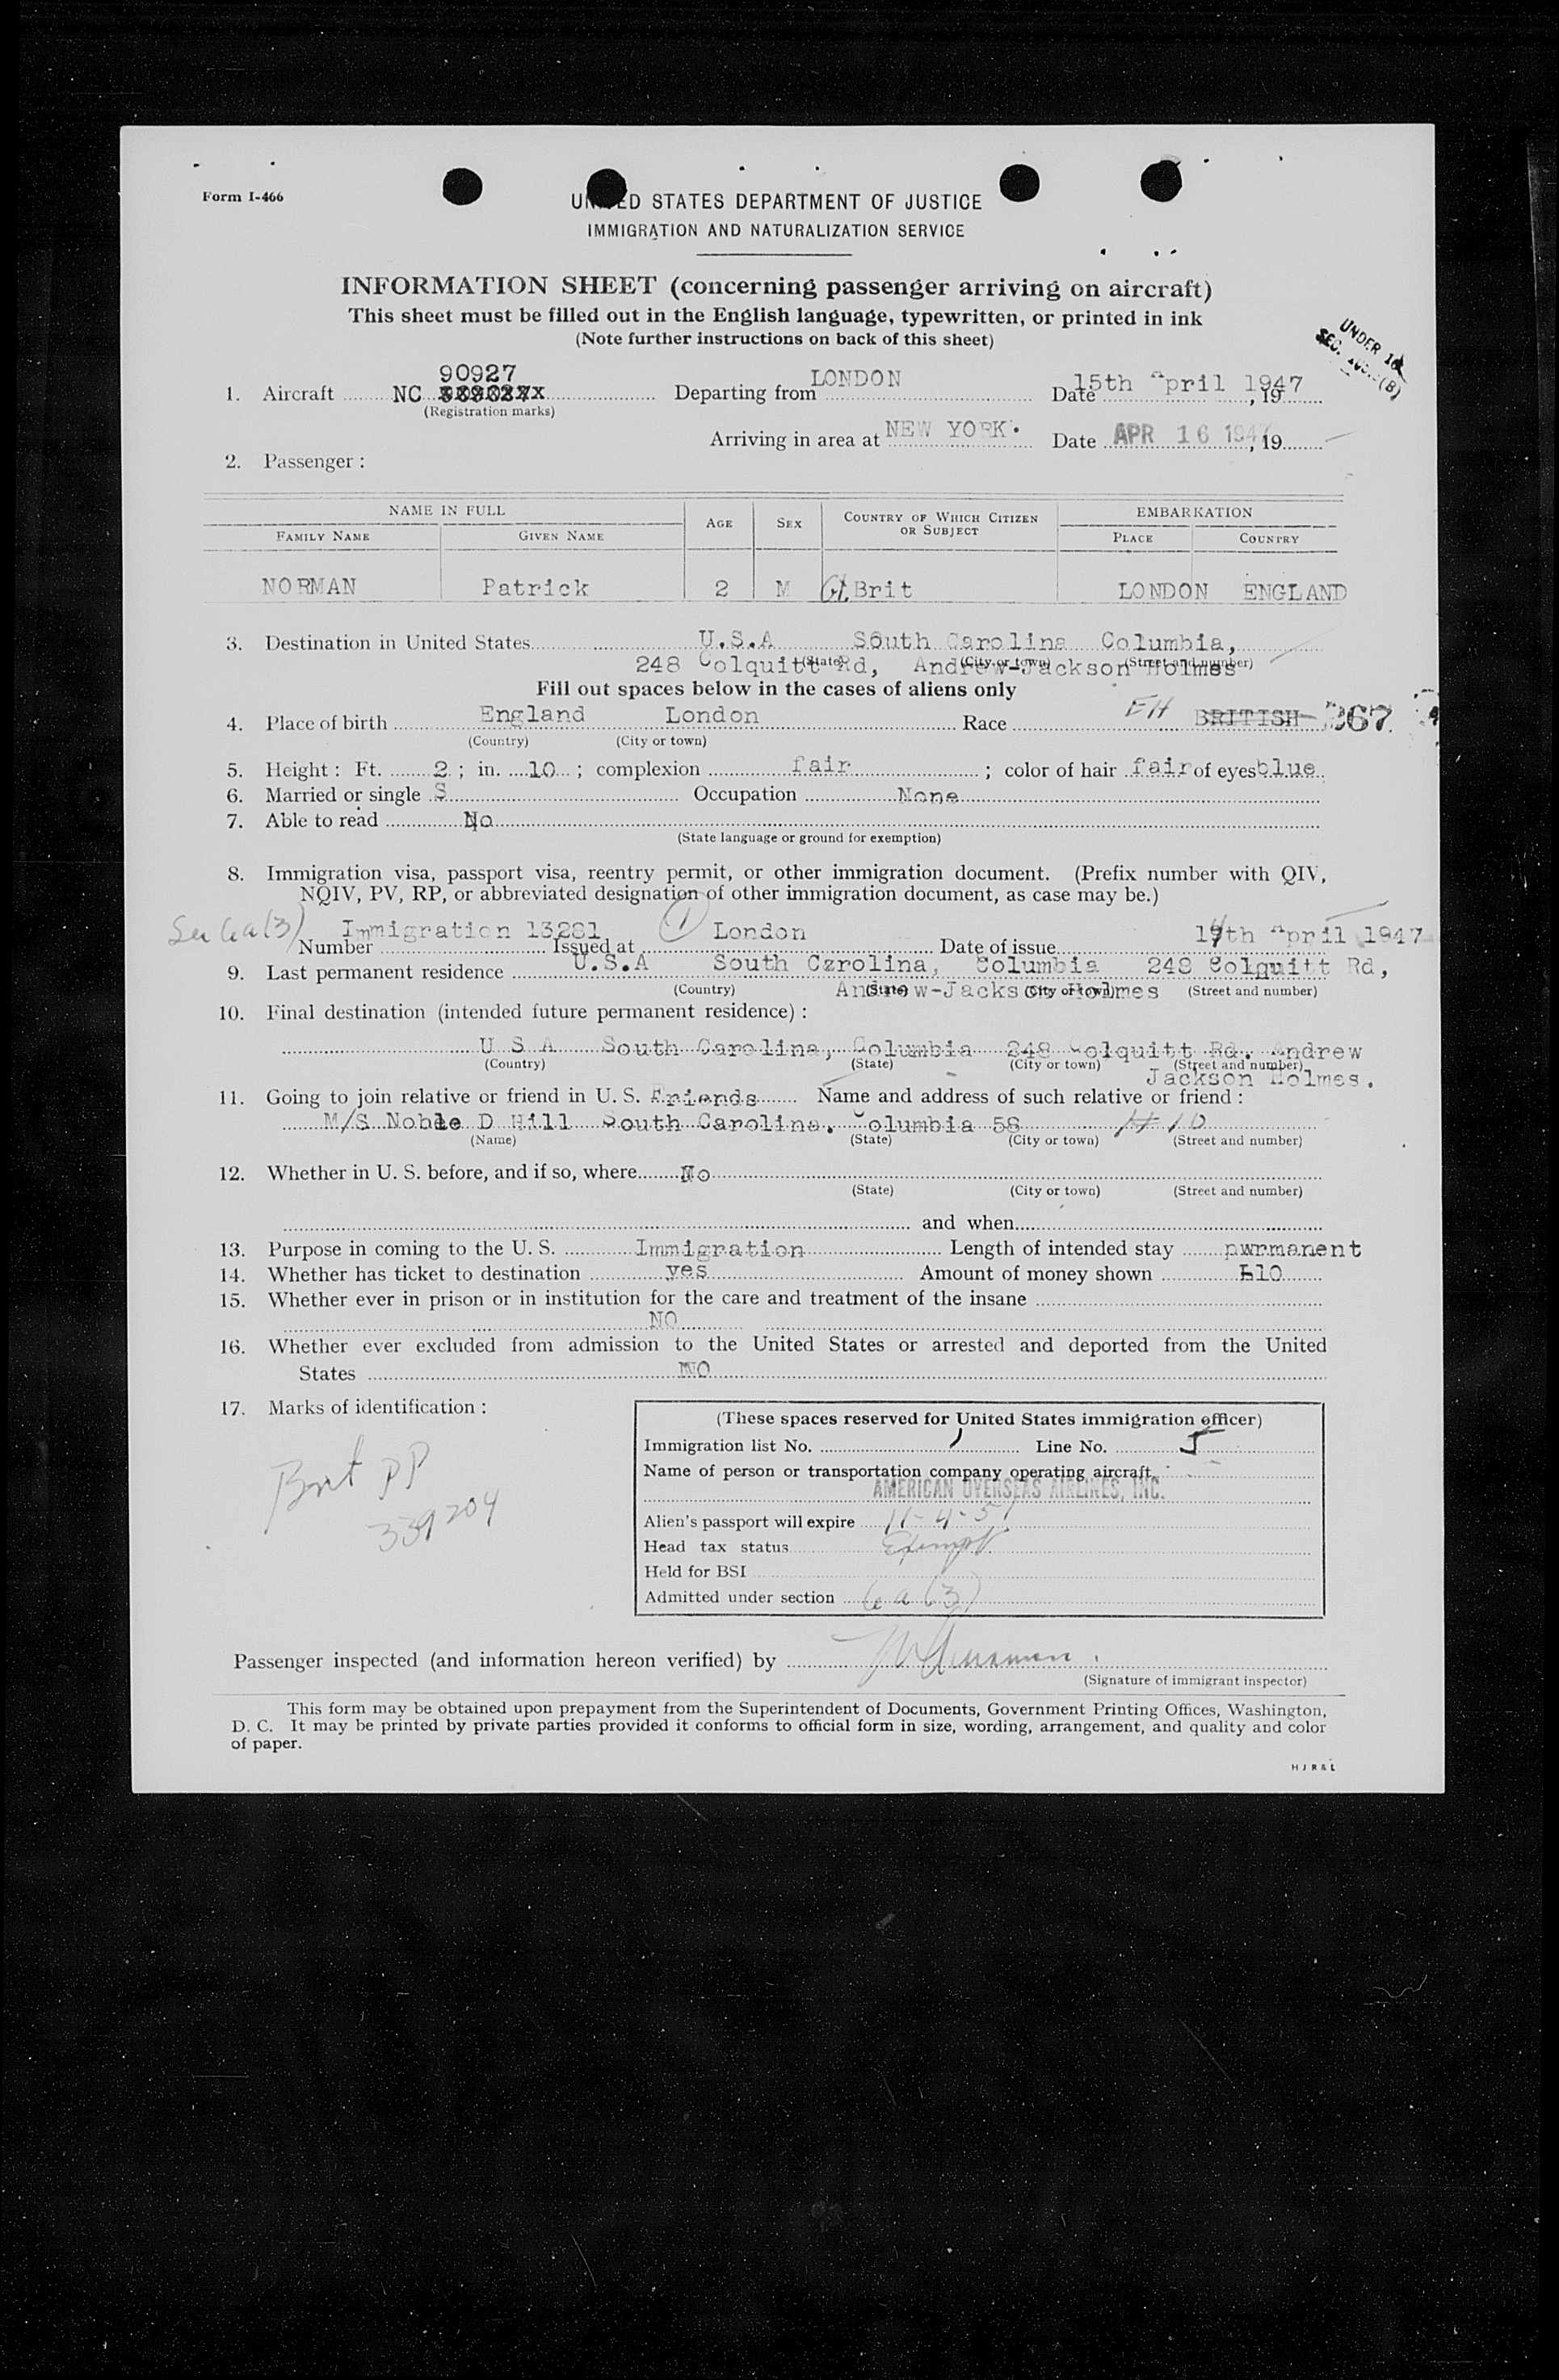 Form I-466
UNITED STATES DEPARTMENT OF JUSTICE
IMMIGRATION AND NATURALIZATION SERVICE
INFORMATION SHEET (concerning passenger arriving on aircraft)
This sheet must be filled out in the English language, typewritten, or printed in ink
(Note further instructions on back of this sheet)
UNDER 16
SEC.
90927
1. Aircraft NC Departing from LONDON Date 15th April 1947, 19
(Registration marks)
Arriving in area at NEW YORK. Date APR 16 1947, 19
2. Passenger :
NAME IN FULL AGE SEX COUNTRY OF WHICH CITIZEN OR SUBJECT EMBARKATION
FAMILY NAME GIVEN NAME PLACE COUNTRY
NORMAN Patrick 2 M Gt. Brit LONDON ENGLAND
3. Destination in United States U.S.A South Carolina Columbia,
248 Colquitt Rd, Andrew-Jackson Holmes
(State) (City or town) (Street and number)
Fill out spaces below in the cases of aliens only
4. Place of birth England London Race EH BRITISH 267
(Country) (City or town)
5. Height : Ft. 2 ; in. 10 ; complexion fair ; color of hair fair of eyes blue
6. Married or single S Occupation None
7. Able to read No
(State language or ground for exemption)
8. Immigration visa, passport visa, reentry permit, or other immigration document. (Prefix number with QIV,
NQIV, PV, RP, or abbreviated designation of other immigration document, as case may be.)
Sec 6a(3) Number Immigration 13281 Issued at London Date of issue 14th April 1947
9. Last permanent residence U.S.A South Czrolina, Columbia 248 Colquitt Rd,
Andrew-Jackson Holmes
(Country) (State) (City or town) (Street and number)
10. Final destination (intended future permanent residence) :
U S A South Carolina, Columbia 248 Colquitt Rd. Andrew
(Country) (State) (City or town) (Street and number)
Jackson Holmes.
11. Going to join relative or friend in U. S. Friends Name and address of such relative or friend :
M/S Noble D Hill South Carolina. Columbia 58
(Name) (State) (City or town) (Street and number)
12. Whether in U. S. before, and if so, where No
(State) (City or town) (Street and number)
and when
13. Purpose in coming to the U. S. Immigration Length of intended stay pwrmanent
14. Whether has ticket to destination yes Amount of money shown £10
15. Whether ever in prison or in institution for the care and treatment of the insane
NO
16. Whether ever excluded from admission to the United States or arrested and deported from the United
States NO
17. Marks of identification :
Brit PP
339204
(These spaces reserved for United States immigration officer)
Immigration list No. 1 Line No. 5
Name of person or transportation company operating aircraft
AMERICAN OVERSEAS AIRLINES, INC.
Alien's passport will expire 11-4-51
Head tax status Exempt
Held for BSI
Admitted under section 6a(3)
Passenger inspected (and information hereon verified) by
(Signature of immigrant inspector)
This form may be obtained upon prepayment from the Superintendent of Documents, Government Printing Offices, Washington,
D. C. It may be printed by private parties provided it conforms to official form in size, wording, arrangement, and quality and color
of paper.
H J R & L